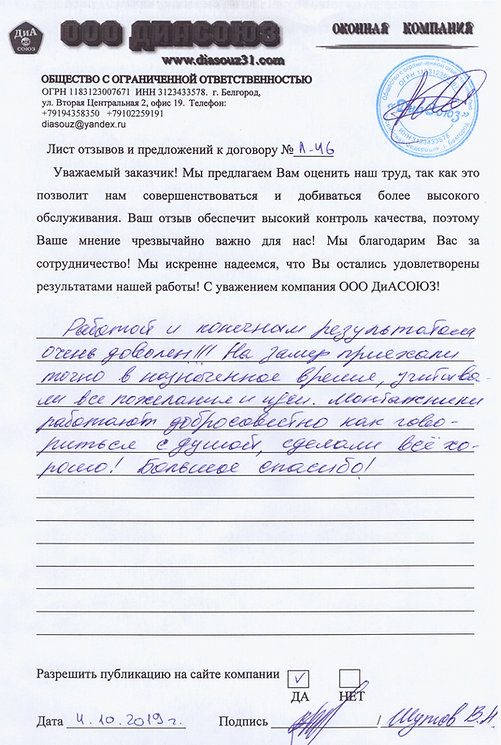 ДиА
СОЮЗ
ООО ДИАСОЮЗ
ОКОННАЯ КОМПАНИЯ
www.diasouz31.com
ОБЩЕСТВО С ОГРАНИЧЕННОЙ ОТВЕТСТВЕННОСТЬЮ
ОГРН 1183123007671 ИНН 3123433578. г. Белгород,
ул. Вторая Центральная 2, офис 19. Телефон:
+79194358350 +79102259191
diasouz@yandex.ru
«ДиАСОЮЗ»
ИНН 3123433578
Лист отзывов и предложений к договору № Л-46
Уважаемый заказчик! Мы предлагаем Вам оценить наш труд, так как это
позволит нам совершенствоваться и добиваться более высокого
обслуживания. Ваш отзыв обеспечит высокий контроль качества, поэтому
Ваше мнение чрезвычайно важно для нас! Мы благодарим Вас за
сотрудничество! Мы искренне надеемся, что Вы остались удовлетворены
результатами нашей работы! С уважением компания ООО ДиАСОЮЗ!
Работой и конечным результатом
очень доволен!!! На замер приехали
точно в назначенное время, учитыва-
ли все пожелания и идеи. Монтажники
работают добросовестно как гово-
риться с душой, сделали всё хо-
рошо! Большое спасибо!
Разрешить публикацию на сайте компании ✓
ДА НЕТ
Дата 4.10.2019г. Подпись / Шутов В.Н.